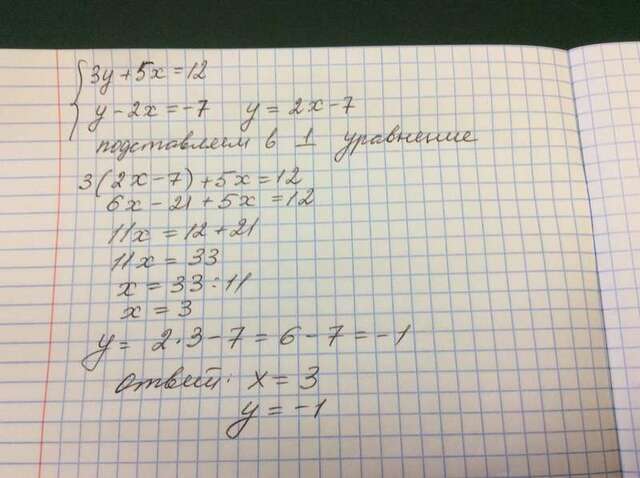 3y+5x=12
y-2x=-7 y=2x-7
подставляем в 1 уравнение
3(2x-7)+5x=12
6x-21+5x=12
11x=12+21
11x=33
x=33:11
x=3
y= 2·3-7=6-7=-1
ответ: x=3
y=-1